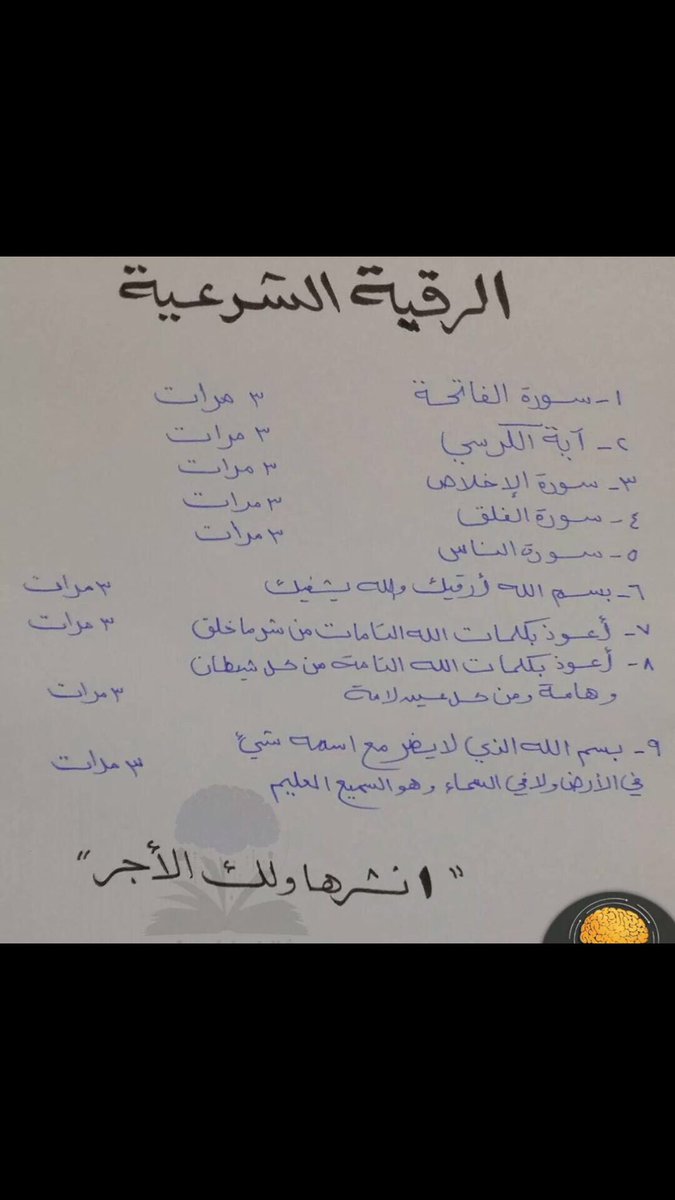 الرقية الشرعية
١- سورة الفاتحة ٣ مرات
٢- آية الكرسي ٣ مرات
٣- سورة الإخلاص ٣ مرات
٤- سورة الفلق ٣ مرات
٥- سورة الناس ٣ مرات
٦- بسم الله أرقيك والله يشفيك ٣ مرات
٧- أعوذ بكلمات الله التامات من شر ما خلق ٣ مرات
٨- أعوذ بكلمات الله التامة من كل شيطان
وهامة ومن كل عين لامة ٣ مرات
٩- بسم الله الذي لا يضر مع اسمه شيء
في الأرض ولا في السماء وهو السميع العليم ٣ مرات
"انشرها ولك الأجر"